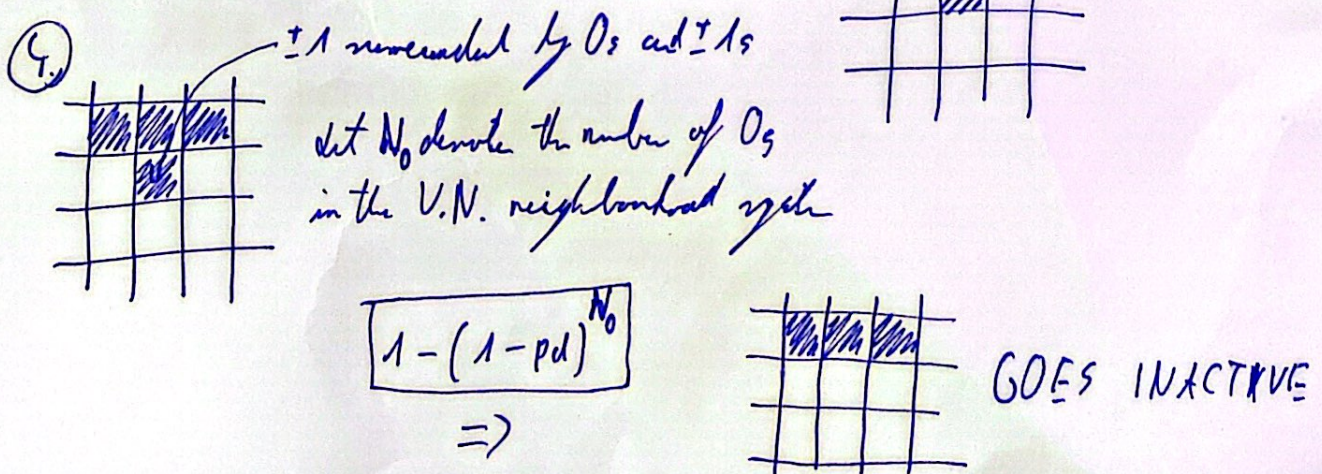 4.
±1 surrounded by 0s and ±1s
Let N₀ denote the number of 0s
in the V.N. neighbourhood system
1-(1-pd)^N₀
=>
GOES INACTIVE